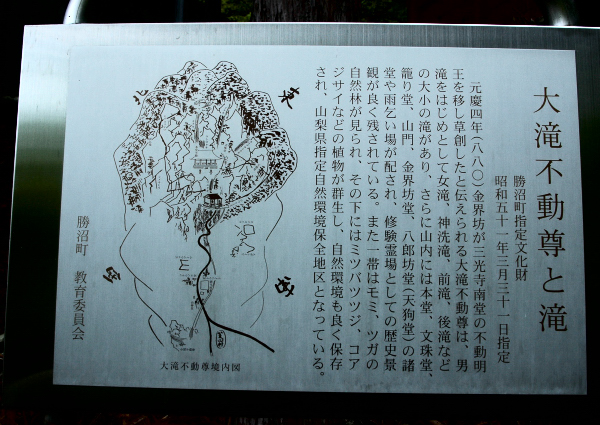 大滝不動尊と滝
勝沼町指定文化財
昭和五十一年三月三十一日指定
元慶四年(八八〇)金界坊が三光寺南堂の不動明
王を移し草創したと伝えられる大滝不動尊は、男
滝をはじめとして女滝、神洗滝、前滝、後滝など
の大小の滝があり、さらに山内には本堂、文珠堂、
籠り堂、山門、金界坊堂、八郎坊堂(天狗堂)の諸
堂や雨乞い場が配され、修験霊場としての歴史景
観が良く残されている。また一帯はモミ、ツガの
自然林が見られ、その下にはミツバツツジ、コア
ジサイなどの植物が群生し、自然環境も良く保存
され、山梨県指定自然環境保全地区となっている。
東
北
西
大滝不動尊境内図
勝沼町 教育委員会